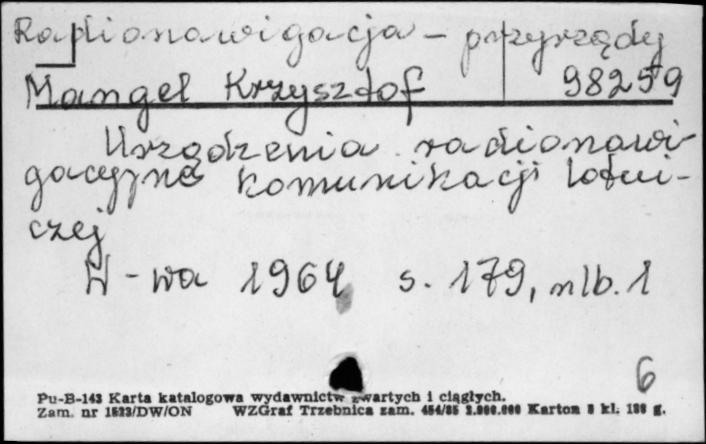 Radionawigacja – przyrządy
Mangel Krzysztof 98259
Urządzenia radionawi-
gacyjne komunikacji lotni-
czej
W-wa 1964 s. 179, nlb. 1
6
Pu-B-143 Karta katalogowa wydawnictw zwartych i ciągłych.
Zam. nr 1523/DW/ON WZGraf Trzebnica zam. 454/85 2.000.000 Karton 8 kl. 180 g.